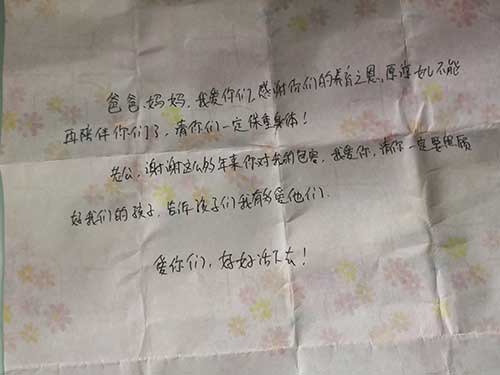 爸爸妈妈,我爱你们,感谢你们的养育之恩,原谅女儿不能
再陪伴你们了,请你们一定保重身体!
老公,谢谢这么多年来你对我的包容,我爱你,请你一定要照顾
好我们的孩子,告诉孩子们我有多爱他们.
爱你们,好好活下去!